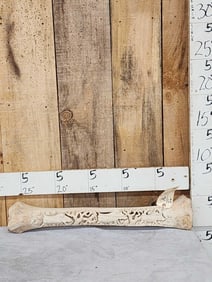 5 5 5 5 5
25" 20" 15" 10"
30"
5
25"
5
20"
5
15"
5
10"
5